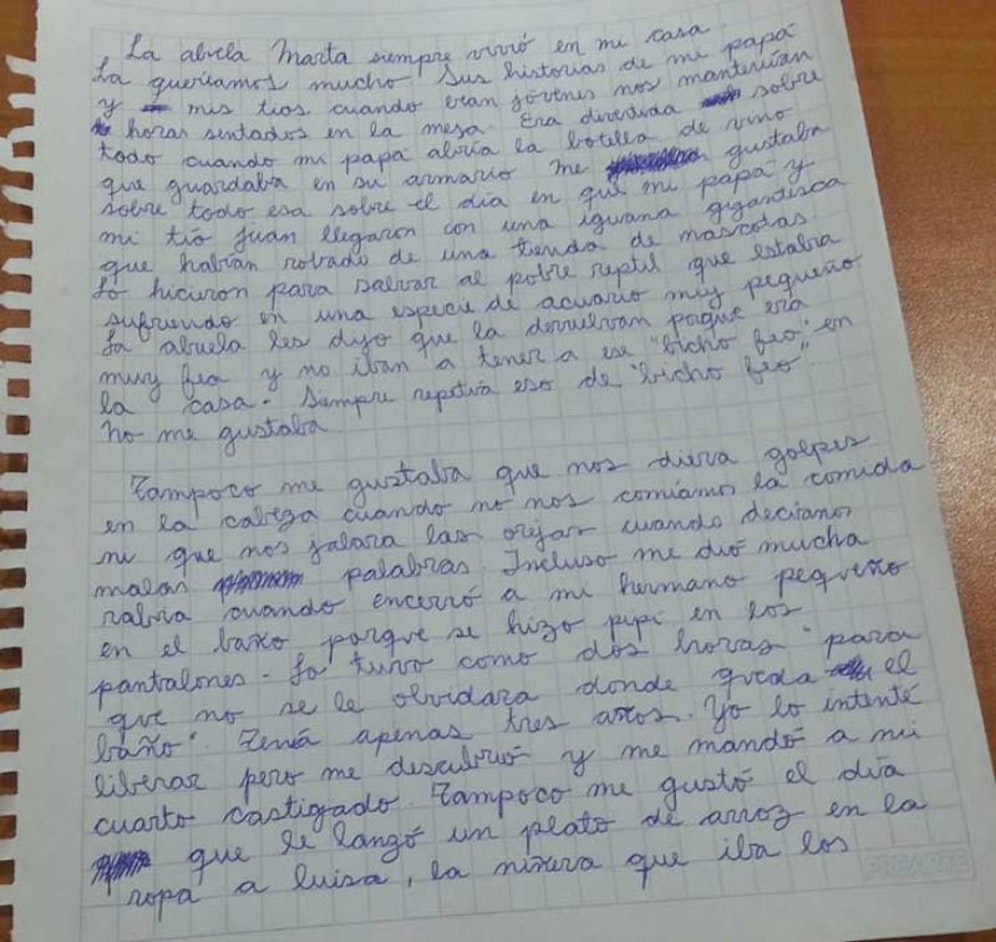 La abuela Marta siempre vivió en mi casa
La queríamos mucho. Sus historias de mi papá
y mis tios cuando eran jóvenes nos mantenían
horas sentados en la mesa. Era divertida sobre
todo cuando mi papá abría la botella de vino
que guardaba en su armario me gustaba
sobre todo esa sobre el día en que mi papá y
mi tío Juan llegaron con una iguana gigantesca
que habían robado de una tienda de mascotas.
Lo hicieron para salvar al pobre reptil que estaba
sufriendo en una especie de acuario muy pequeño.
La abuela les dijo que la devuelvan porque era
muy fea y no iban a tener a ese "bicho feo", en
la casa. Siempre repetía eso de "bicho feo".
No me gustaba
Tampoco me gustaba que nos diera golpes
en la cabeza cuando no nos comíamos la comida
ni que nos jalara las orejas cuando decíamos
malas palabras. Incluso me dió mucha
rabia cuando encerró a mi hermano pequeño
en el baño porque se hizo pipí en los
pantalones. Lo tuvo como dos horas "para
que no se le olvidara donde queda el
baño". Tenía apenas tres años. Yo lo intenté
liberar pero me descubrió y me mandó a mi
cuarto castigado. Tampoco me gustó el día
que le lanzó un plato de arroz en la
ropa a Luisa, la niñera que iba los
PROARTE